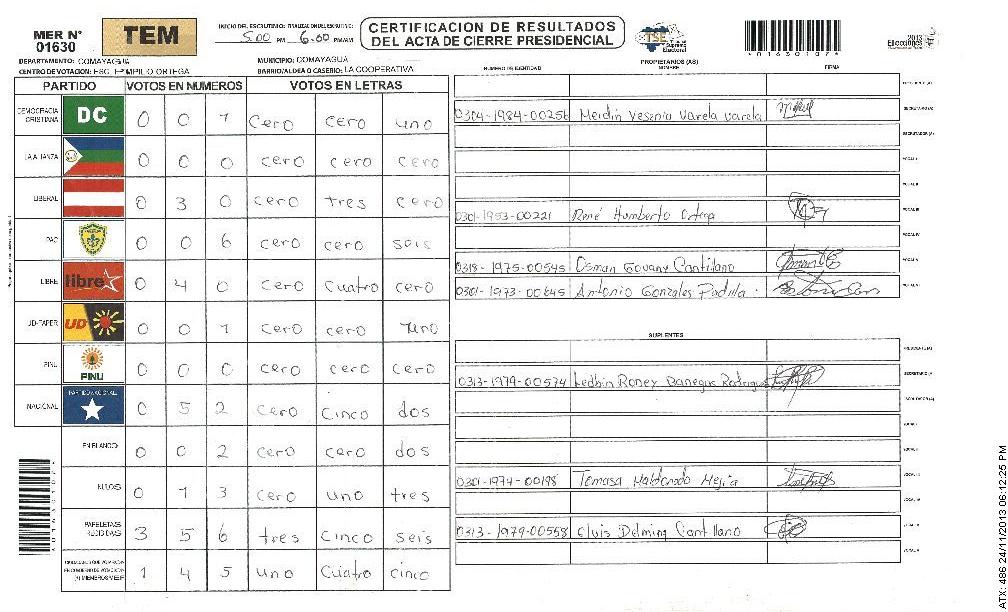 MER N° 01630
TEM
INICIO DEL ESCRUTINIO: FINALIZACION DEL ESCRUTINIO:
5:00 PM 6:00 PM/AM
CERTIFICACION DE RESULTADOS
DEL ACTA DE CIERRE PRESIDENCIAL
TSE
Tribunal Supremo Electoral
01630107
2013
Elecciones
DEPARTAMENTO: COMAYAGUA
MUNICIPIO: COMAYAGUA
CENTRO DE VOTACION: ESC. ORTEGA
BARRIO/ALDEA O CASERIO: LA COOPERATIVA
PARTIDO VOTOS EN NUMEROS VOTOS EN LETRAS
DEMOCRACIA CRISTIANA DC 0 0 1 Cero cero uno
LA ALIANZA 0 0 0 cero cero cero
LIBERAL 0 3 0 cero tres cero
PAC 0 0 6 cero cero seis
LIBRE libre 0 4 0 cero Cuatro cero
UD-FAPER UD 0 0 1 cero cero uno
PINU PINU 0 0 0 cero cero cero
NACIONAL PARTIDO NACIONAL 0 5 2 cero Cinco dos
EN BLANCO 0 0 2 cero cero dos
NULOS 0 1 3 cero uno tres
PAPELETAS RECIBIDAS 3 5 6 tres Cinco seis
1 4 5 uno Cuatro cinco
NUMERO DE IDENTIDAD
PROPIETARIOS (AS)
NOMBRE
FIRMA
PRESIDENTE (A)
0304-1984-00256 Meidin Yesenia Varela Varela SECRETARIO (A)
ESCRUTADOR (A)
VOCAL I
VOCAL II
0301-1953-00221 René Humberto Ortega VOCAL III
VOCAL IV
0318-1975-00545 Osman Govany Cantillano VOCAL V
0301-1973-00645 Antonio Gonzales Padilla
SUPLENTES
PRESIDENTE (A)
0313-1979-00574 Ledbin Roney Banegas Rodriguez SECRETARIO (A)
ESCRUTADOR (A)
VOCAL I
VOCAL II
0301-1974-00198 Tomasa Maldonado Mejia VOCAL III
VOCAL IV
0313-1979-00558 Elvis Delming Cantillano VOCAL V
01630107
ATX: 486 24/11/2013 06:12:25 PM